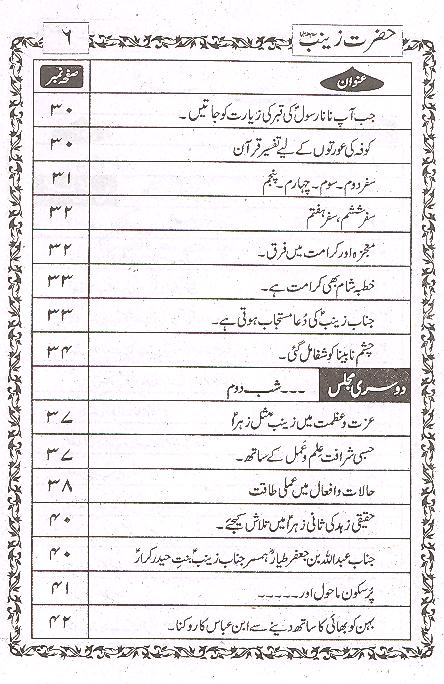 حضرت زینبؑ ۶
عنوان صفحہ نمبر
جب آپ نانا رسولؐ کی قبر کی زیارت کو جاتیں۔ ۳۰
کوفہ کی عورتوں کے لیے تفسیر قرآن ۳۰
سفر دوم۔ سوم۔ چہارم۔ پنجم ۳۱
سفر ششم، سفر ہفتم ۳۲
معجزہ اور کرامت میں فرق۔ ۳۲
خطبہ شام بھی کرامت ہے۔ ۳۳
جناب زینبؑ کی دُعا مستجاب ہوتی ہے۔ ۳۳
چشم نابینا کو شفا مل گئی۔ ۳۴
دوسری مجلس ۔۔۔ شب دوم
عزت و عظمت میں زینبؑ مثل زہراؑ ۳۷
حسبی شرافت علم و عمل کے ساتھ۔ ۳۷
حالات و افعال میں عملی طاقت ۳۸
حقیقی زہد کی ثانی زہراؑ میں تلاش کیجئے۔ ۴۰
جناب عبداللہ بن جعفر طیارؑ ہمسر جناب زینبؑ بنتِ حیدر کرارؑ ۴۰
پُر سکون ماحول اور۔۔۔۔۔ ۴۱
بہن کو بھائی کا ساتھ دینے سے ابن عباس کا روکنا۔ ۴۲